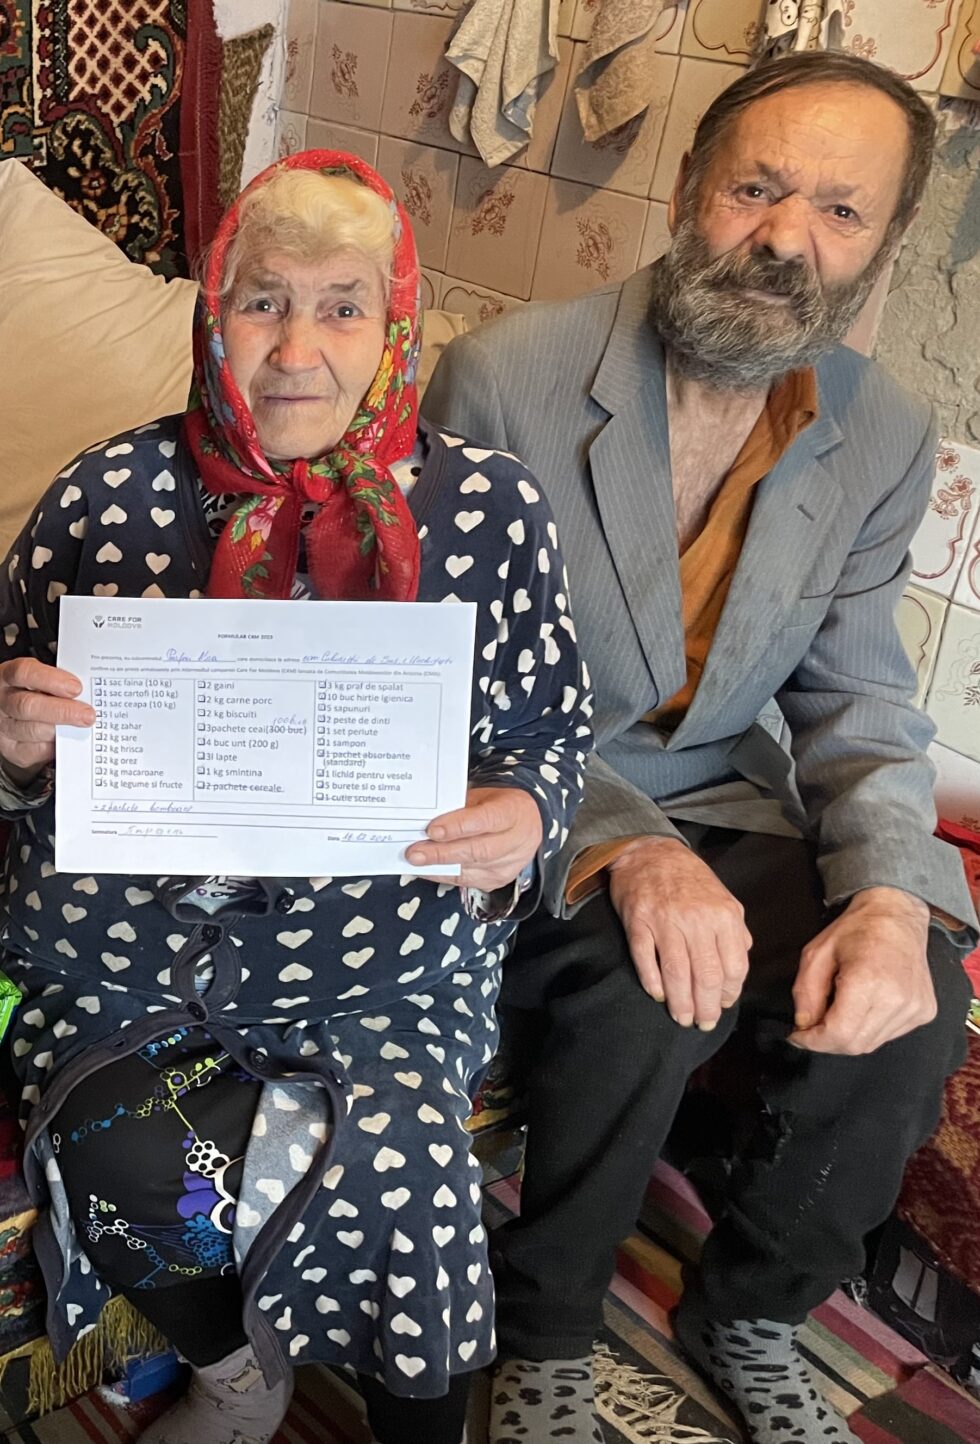 CARE FOR
MOLDOVA
FORMULAR CAM 2023
Prin prezenta, eu subsemnatul care domiciliez la adresa com de Sus
confirm ca am primit urmatoarele prin intermediul companiei Care For Moldova (CAM) lansata de Comunitatea Moldovenilor din Arizona (CMA):
1 sac faina (10 kg)
1 sac cartofi (10 kg)
1 sac ceapa (10 kg)
5 l ulei
2 kg zahar
2 kg sare
2 kg hrisca
2 kg orez
2 kg macaroane
5 kg legume si fructe
2 gaini
2 kg carne porc
2 kg biscuiti
3pachete ceai(300 buc)
4 buc unt (200 g)
3l lapte
1 kg smintina
2 pachete cereale
3 kg praf de spalat
10 buc hirtie igienica
5 sapunuri
2 peste de dinti
1 set periute
1 sampon
1 pachet absorbante
(standard)
1 lichid pentru vesela
5 burete si o sirma
1 cutie scutece
+ 2 pachete bomboane
Semnatura
Data